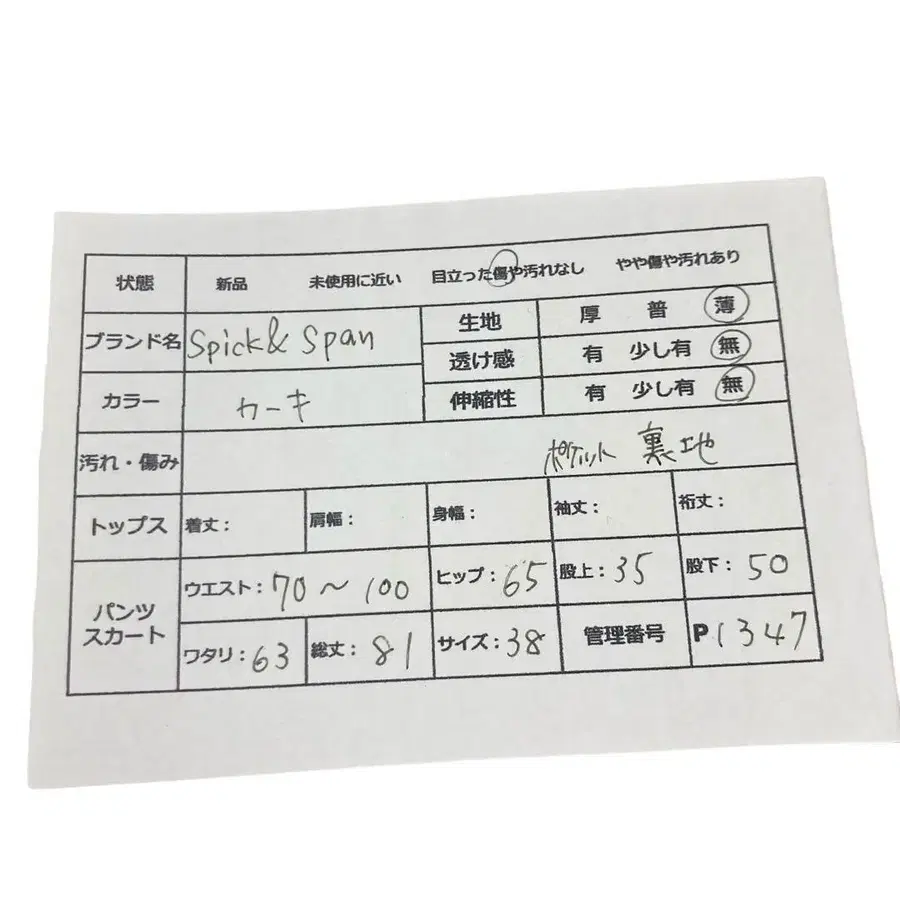 状態 新品 未使用に近い 目立った傷や汚れなし やや傷や汚れあり
ブランド名 Spick & Span 生地 厚 普 薄
透け感 有 少し有 無
カラー カーキ 伸縮性 有 少し有 無
汚れ・傷み ポケット 裏地
トップス 着丈: 肩幅: 身幅: 袖丈: 裄丈:
パンツ スカート ウエスト:70〜100 ヒップ:65 股上:35 股下:50
ワタリ:63 総丈:81 サイズ:38 管理番号 P1347